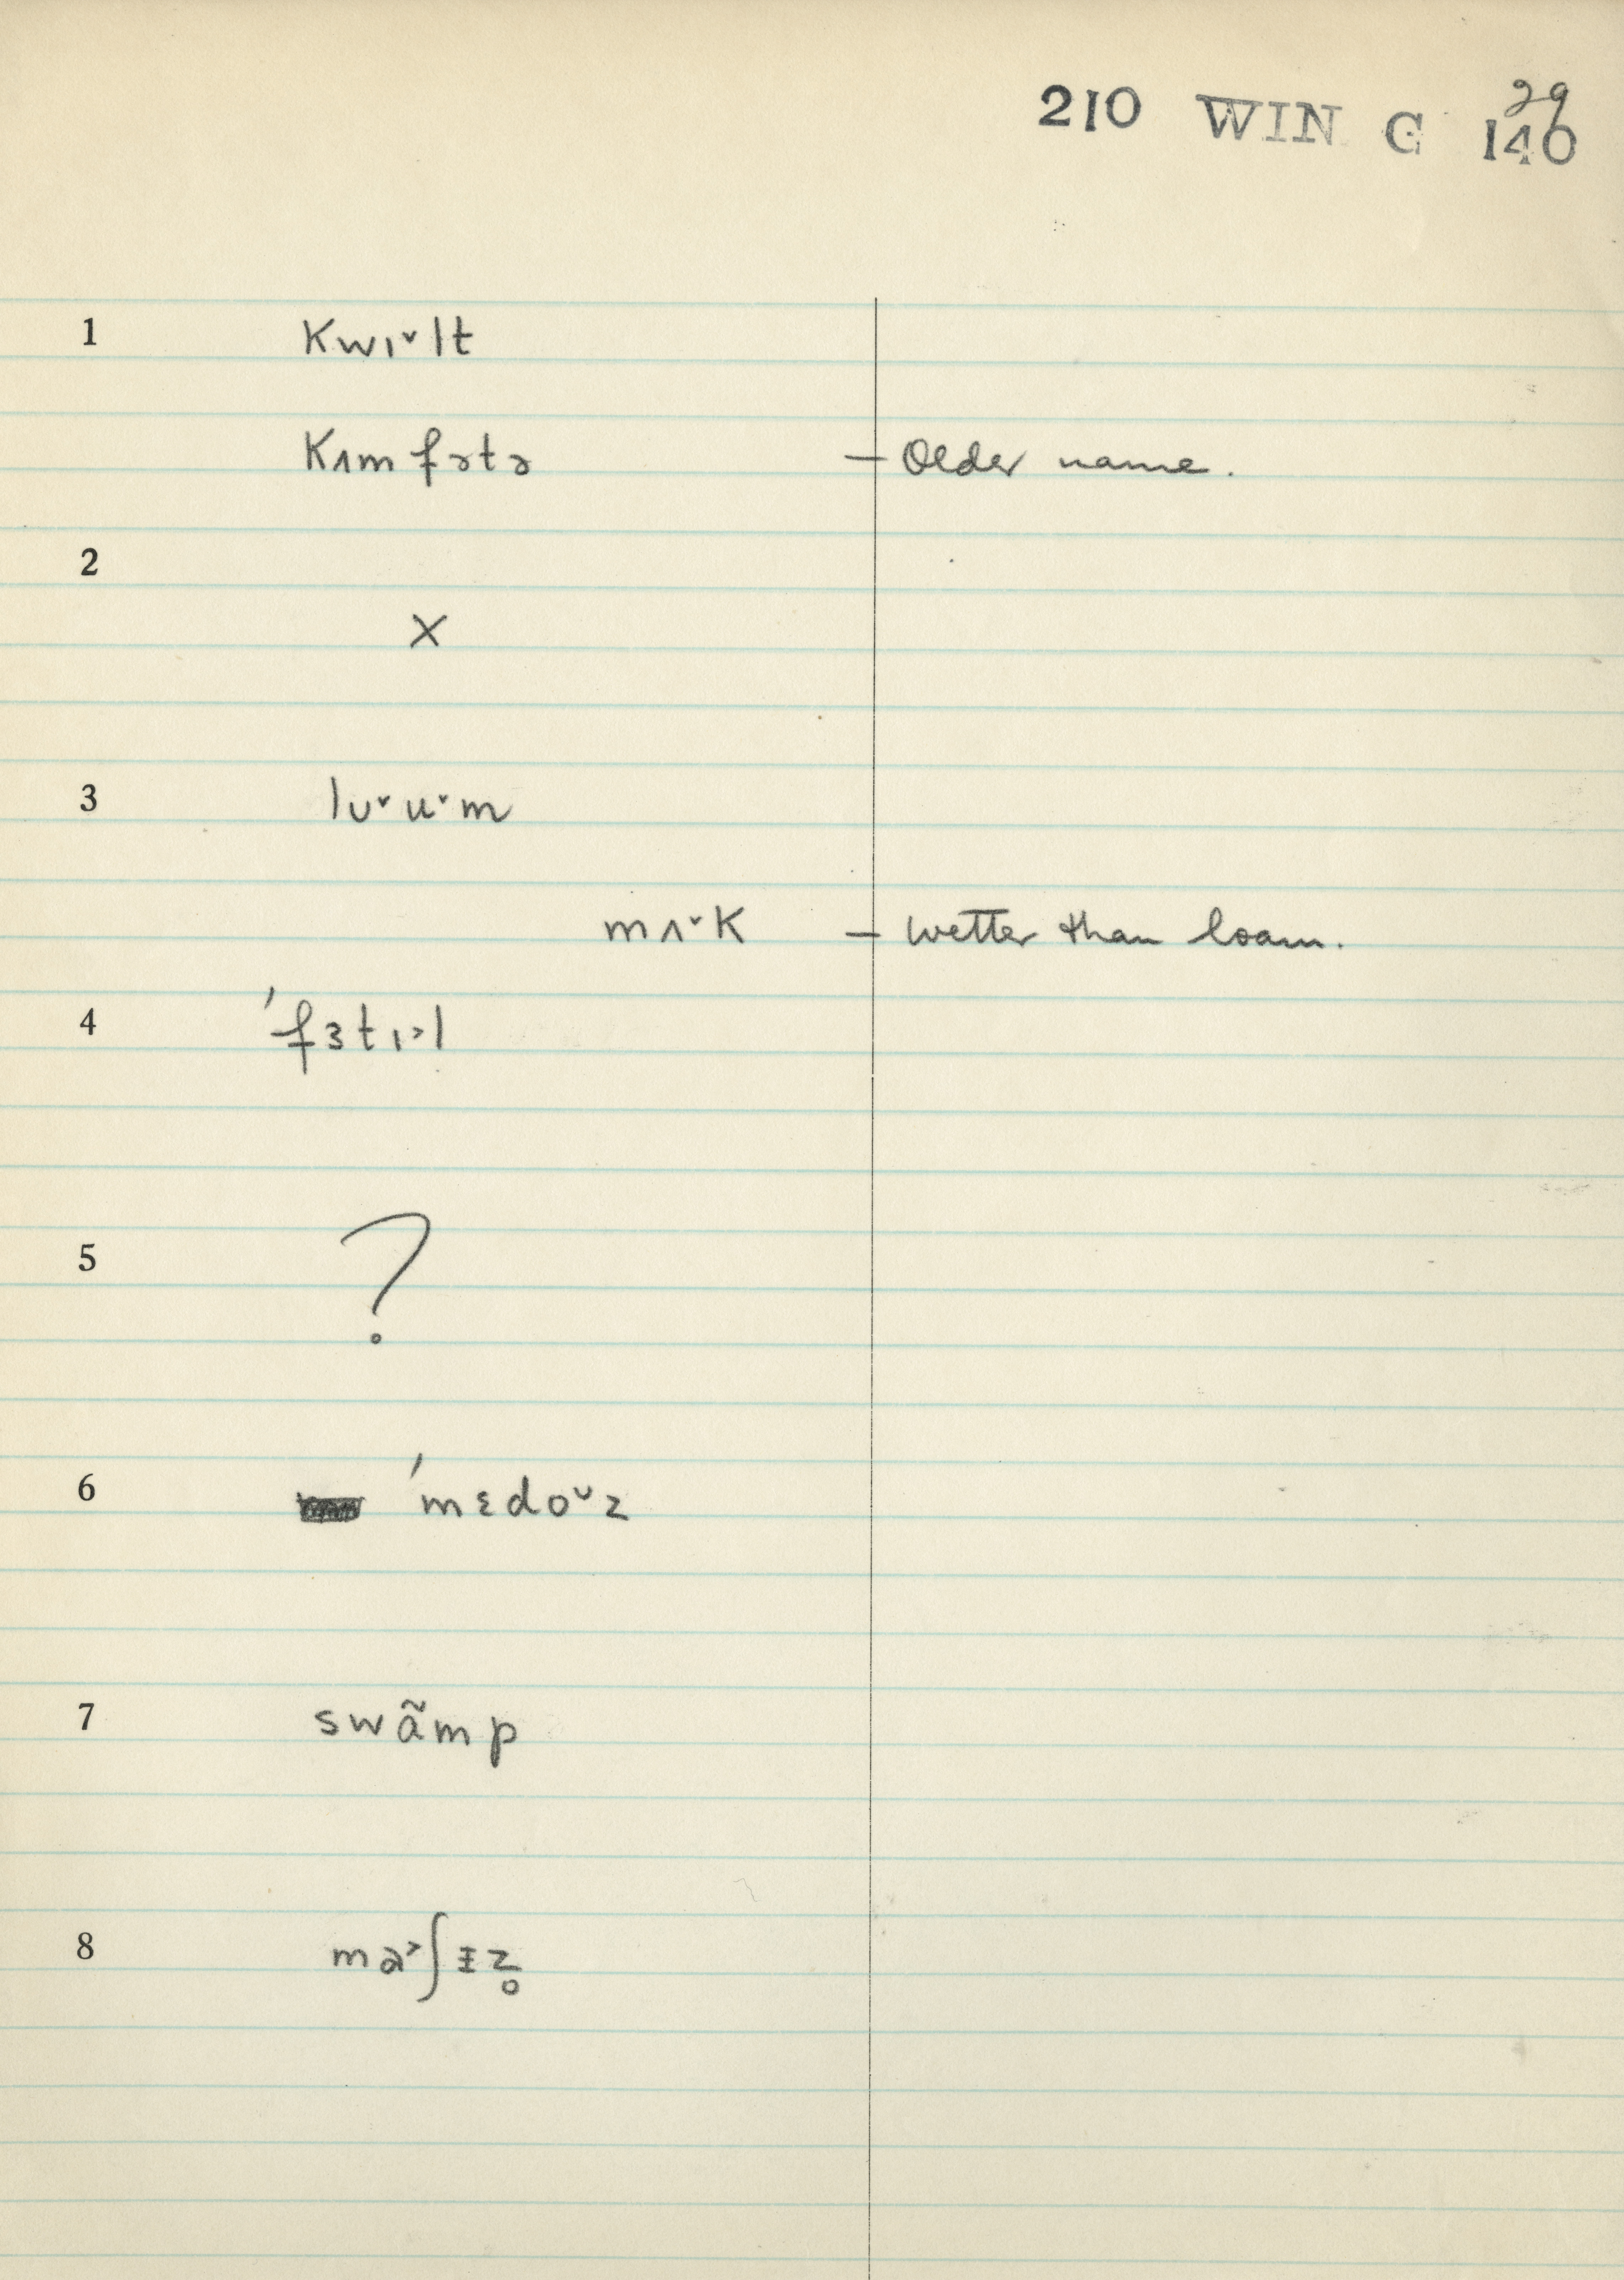 210 WIN G 140
29
1 kwɪ˅lt
kʌmfətə – Older name.
2
×
3 lʊ˅u˅m
mʌ˅k – wetter than loam.
4 ˈfɜtɪ˃l
5 ?
6 ˈmɛdo˅z
7 swãmp
8 ma˃ʃɪz̥